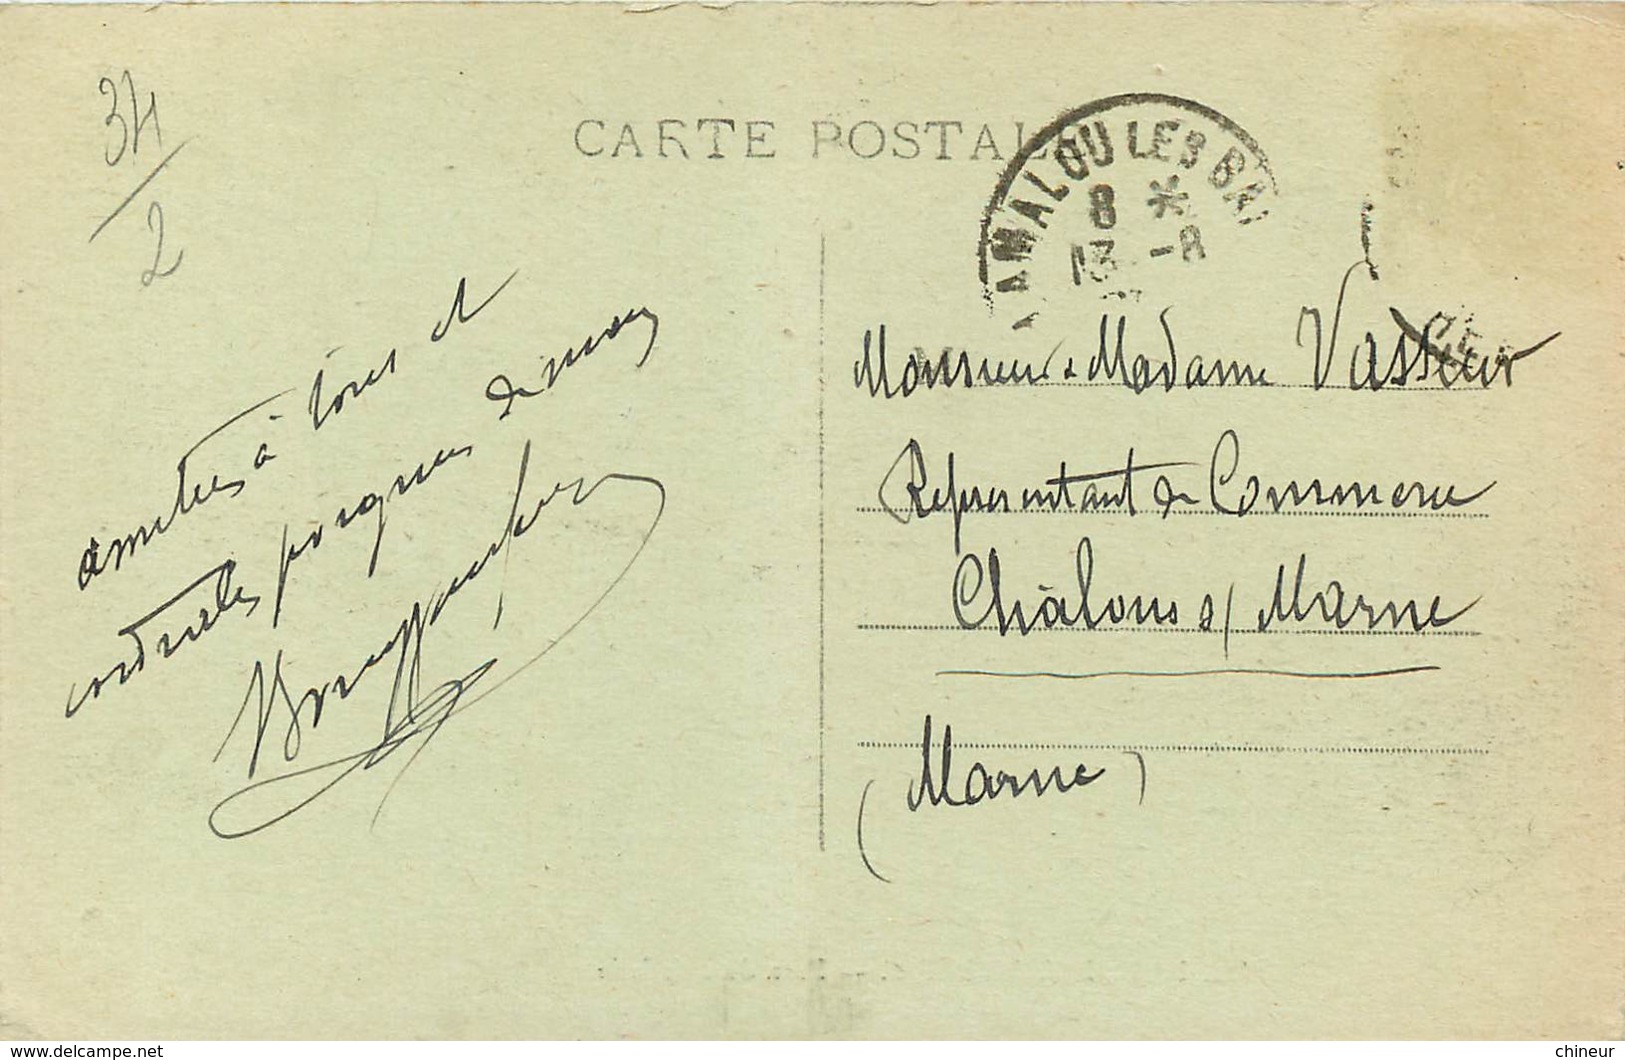 34
2
CARTE POSTALE
LAMALOU LES BAI
8 *
13 -8
amitiés à tous et
cordiales poignées de main
Monsieur & Madame Vasseur
Représentant de Commerce
Châlons s/ Marne
(Marne)
Delcampe.net
chineur